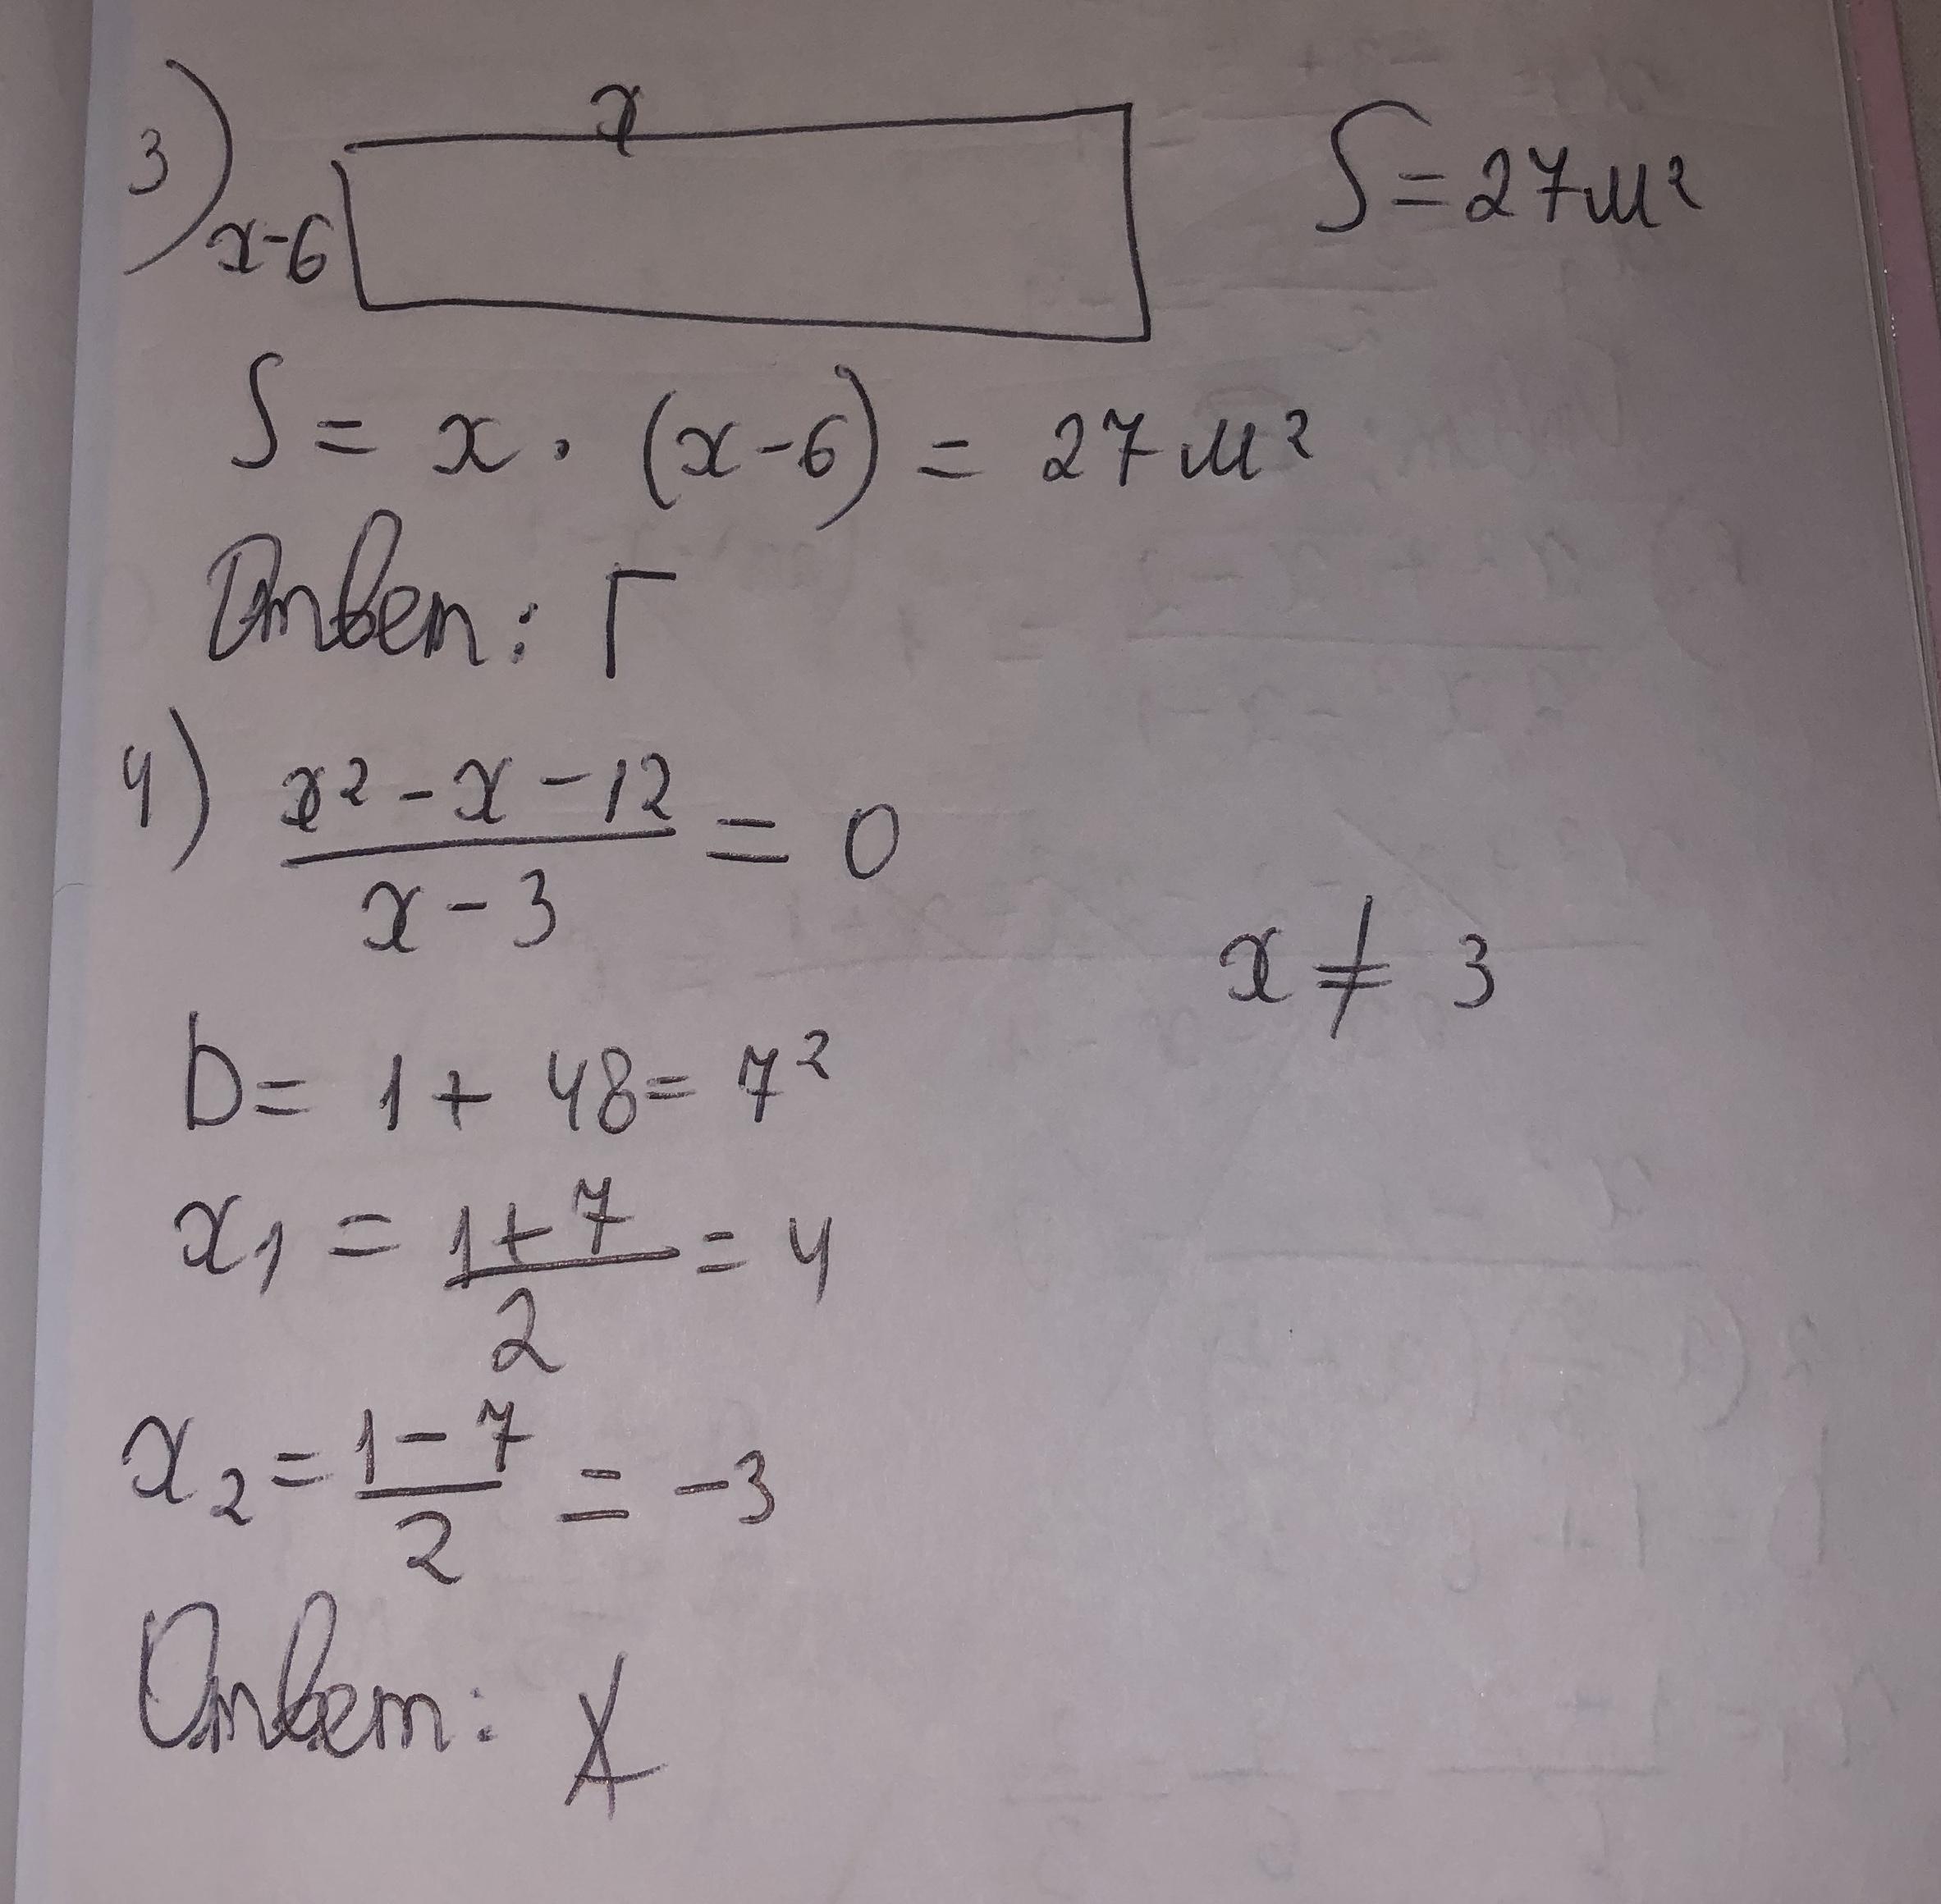 3) x S = 27 м²
x-6
S = x · (x-6) = 27 м²
Ответ: Г
4) (x² - x - 12)/(x - 3) = 0
x ≠ 3
D = 1 + 48 = 7²
x₁ = (1+7)/2 = 4
x₂ = (1-7)/2 = -3
Ответ: